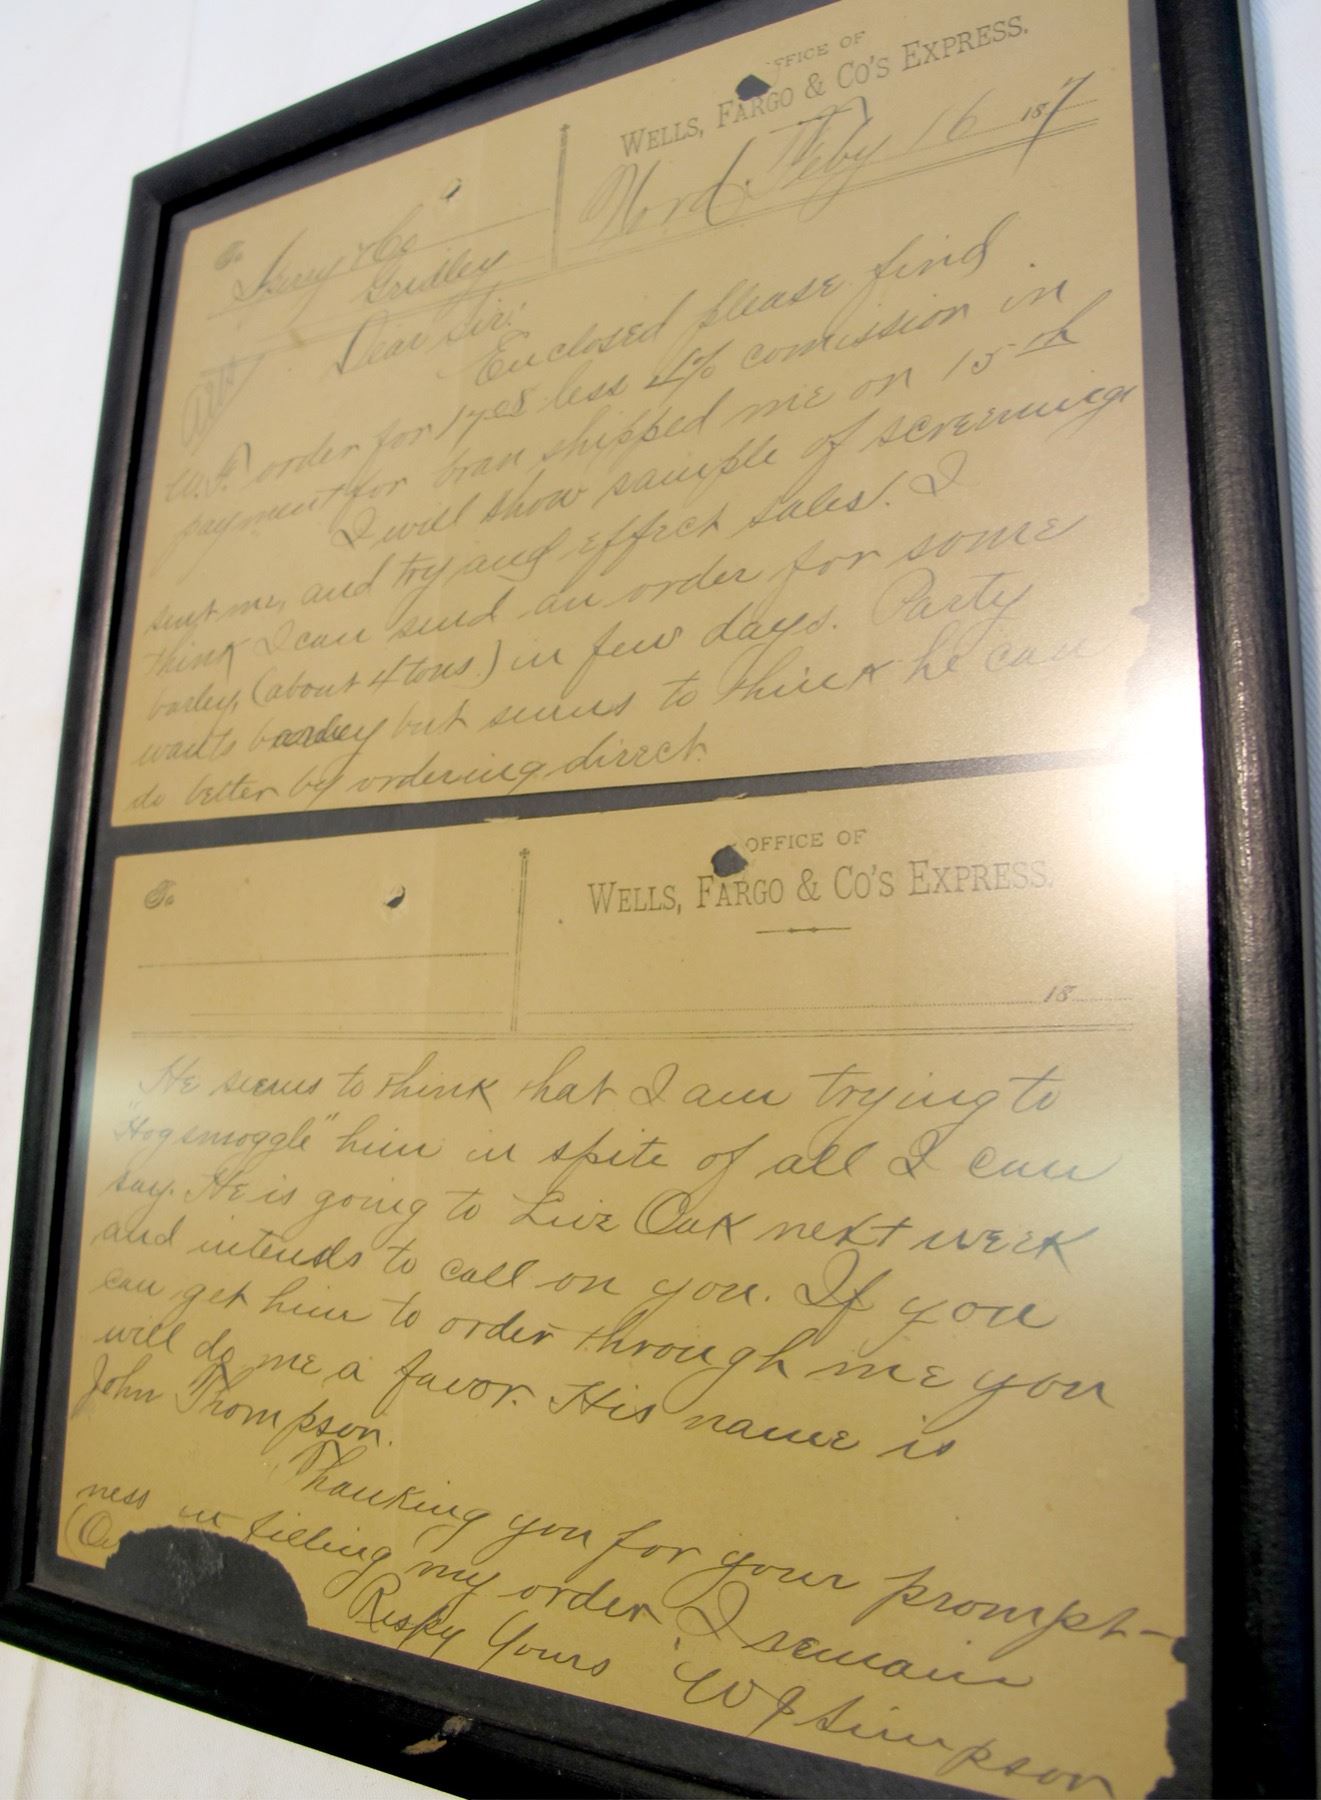 OFFICE OF
WELLS, FARGO & CO'S EXPRESS.
Nord. Feby 16 187
To
& Co
Gridley
Dear Sir:
Enclosed please find
W.F. order for 17 less 4% comission in
payment for bran shipped me on 15th
I will show sample of screenings
sent me, and try and effect sales. I
think I can send an order for some
barley, (about 4 tons.) in few days. Party
wants barley but seems to think he can
do better by ordering direct.
OFFICE OF
WELLS, FARGO & CO'S EXPRESS.
To
18
He seems to think that I am trying to
"Hogsmoggle" him in spite of all I can
say. He is going to Live Oak next week
and intends to call on you. If you
can get him to order through me you
will do me a favor. His name is
John Thompson.
Thanking you for your prompt-
ness in filling my order, I remain
Respy Yours
W J Simpson